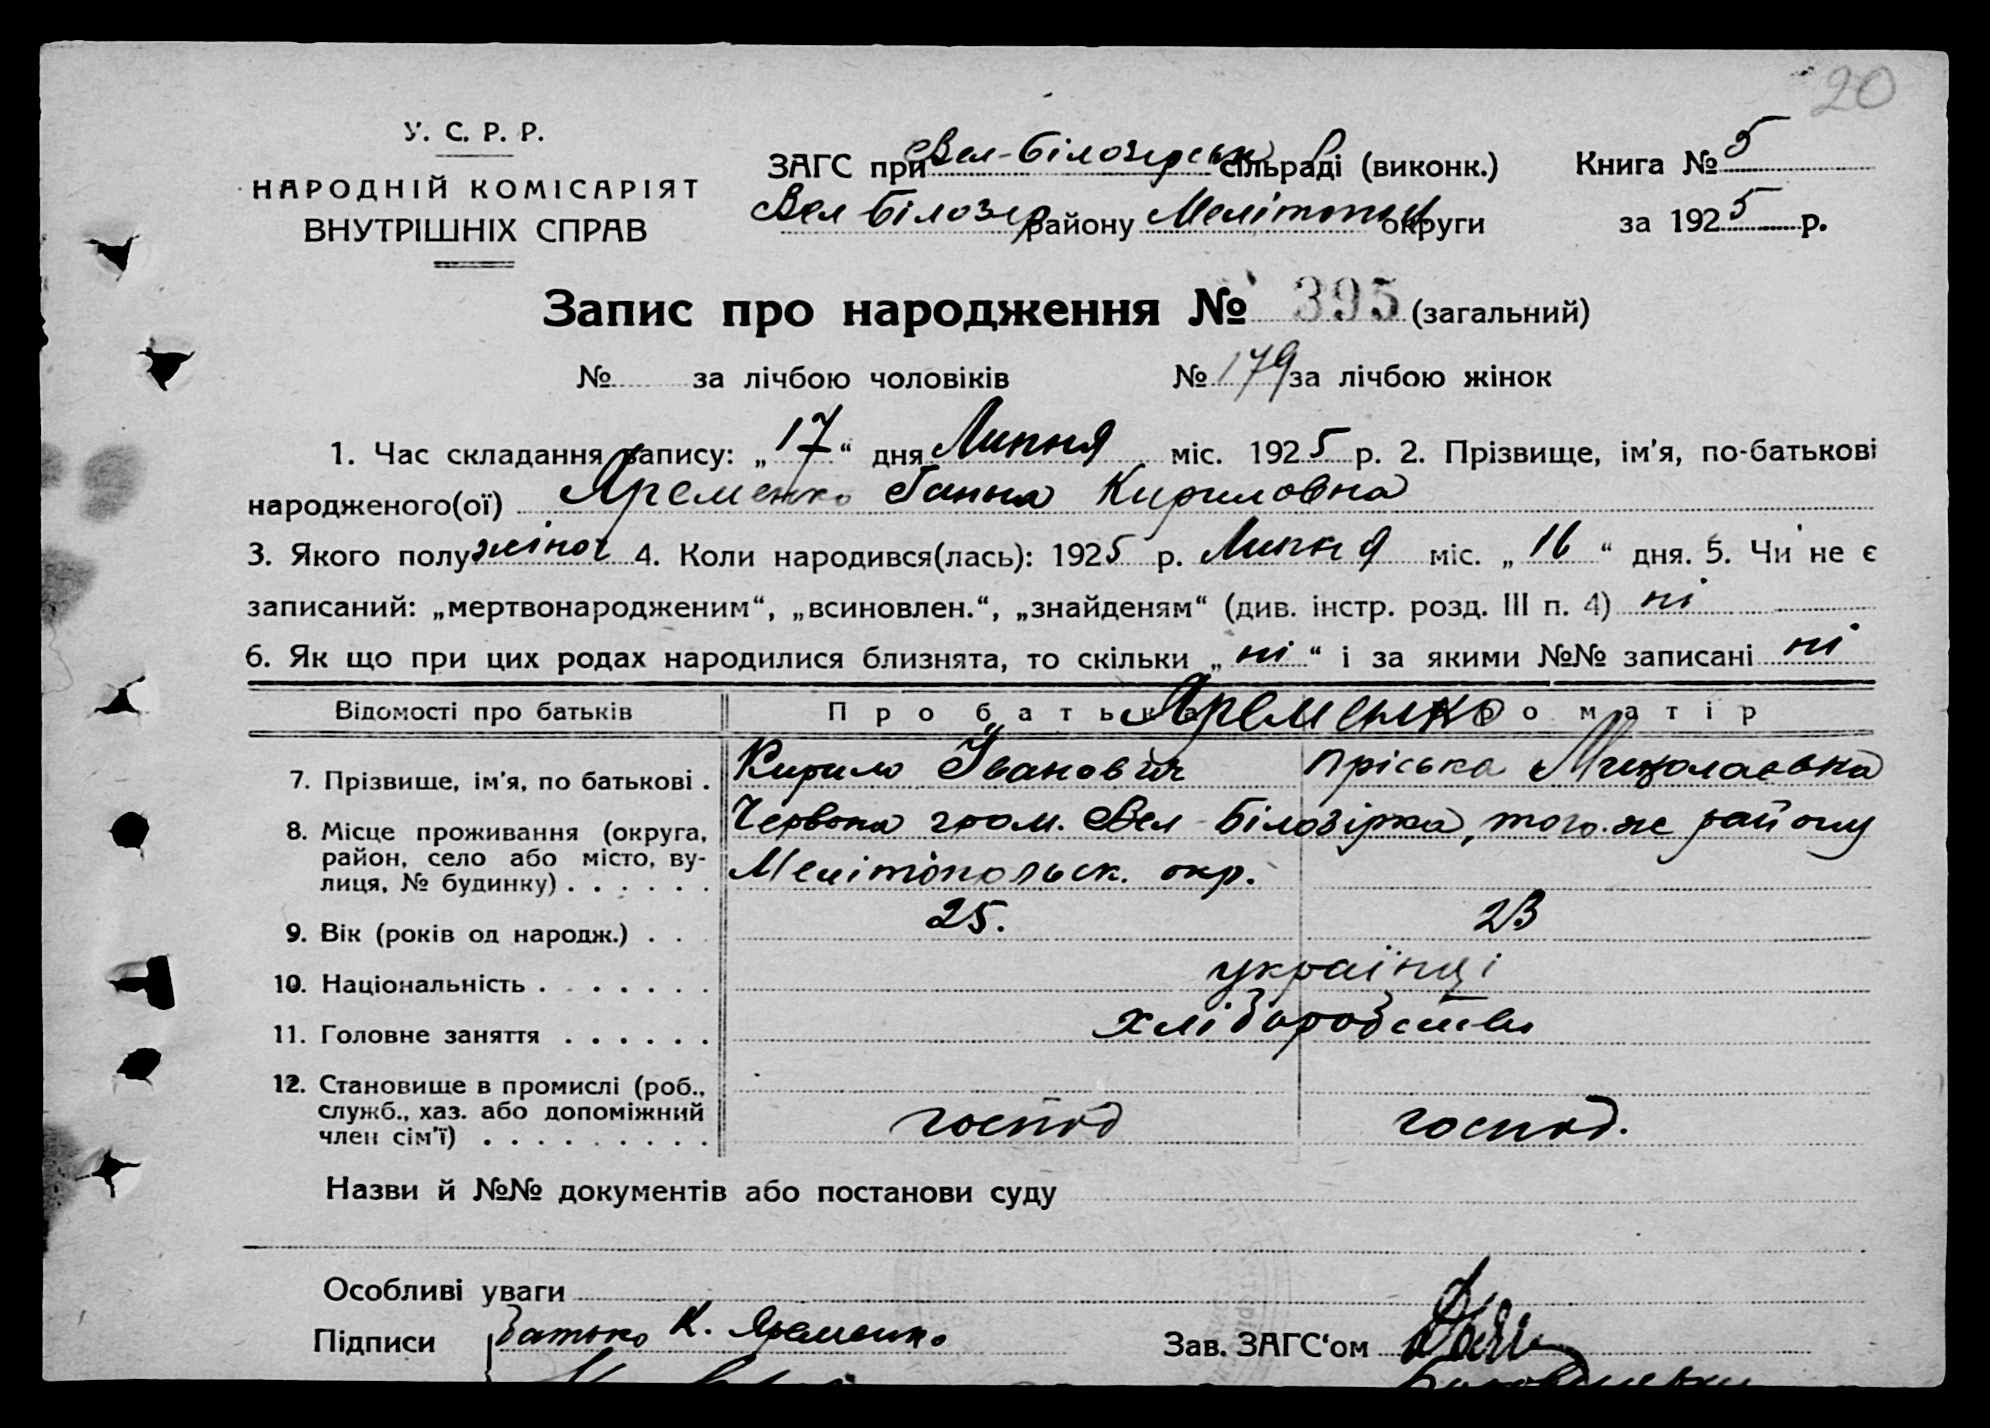 20
У. С. Р. Р.
НАРОДНІЙ КОМІСАРІЯТ
ВНУТРІШНІХ СПРАВ
ЗАГС при Вел-Білозерськ сільраді (виконк.) Книга № 5
Вел Білозер району Мелітопол округи за 1925 р.
Запис про народження № 395 (загальний)
№ за лічбою чоловіків № 179 за лічбою жінок
1. Час складання запису: „17“ дня Липня міс. 1925 р. 2. Прізвище, ім'я, по-батькові
народженого(ої) Яременко Ганна Кириловна
3. Якого полу жіноч 4. Коли народився(лась): 1925 р. Липня міс. „16“ дня. 5. Чи не є
записаний: „мертвонародженим“, „всиновлен.“, „знайденям“ (див. інстр. розд. III п. 4) ні
6. Як що при цих родах народилися близнята, то скільки „ні“ і за якими №№ записані ні
Відомості про батьків Про батька Яременко Про матір
7. Прізвище, ім'я, по батькові . Кирило Іванович Пріська Миколаєвна
8. Місце проживання (округа, Червона гром. Вел-Білозірка, того-же району
район, село або місто, ву- Мелітопольск. окр.
лиця, № будинку) . . . . . .
9. Вік (років од народж.) . . 25. 23
10. Національність . . . . . . . українці
11. Головне заняття . . . . . . хліборобство
12. Становище в промислі (роб.,
служб., хаз. або допоміжний господ господ.
член сім'ї) . . . . . . . . .
Назви й №№ документів або постанови суду
Особливі уваги
Підписи Батько К. Яременко Зав. ЗАГС'ом